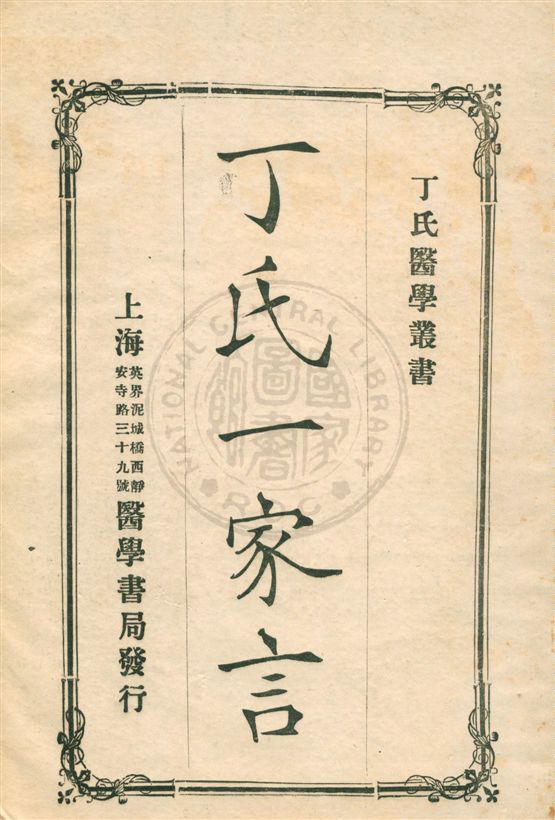 丁氏醫學叢書
丁氏一家言
上海英界泥城橋西靜安寺路三十九號醫學書局發行
NATIONAL CENTRAL LIBRARY
國家圖書館